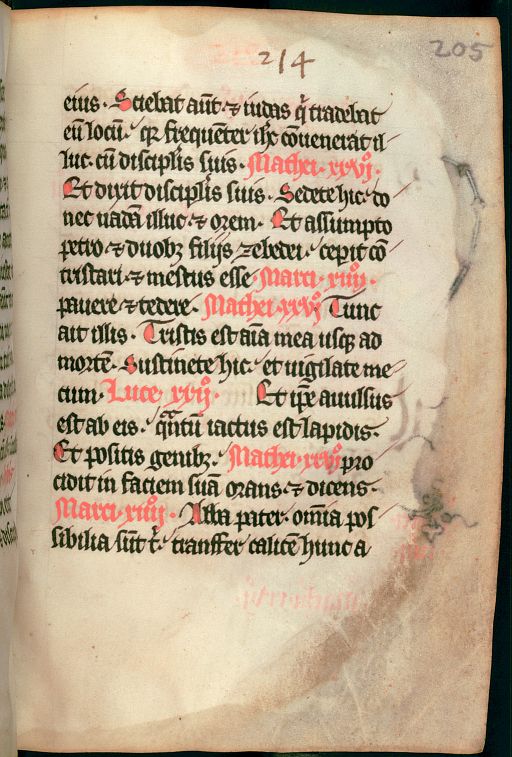 214
205
eius. Sciebat aūt ⁊ iudas q̄ tradebat
eū locū. qꝫ frequēter ihc̄ cōuenerat il
luc. cū discipl̄is suis. Mathei. xxvjͦ.
Et dixit discipl̄is suis. Sedete hic. do
nec uadā illuc. ⁊ orem. Et assumpto
petro. ⁊ duobꝫ filijs zebedei. cepit cō
tristari. ⁊ mestus esse. Marci. xiiijͦ.
pauere. ⁊ tedere. Mathei. xxvjͦ. Tunc
ait illis. Tristis est aīa mea usqꝫ ad
mortē. Sustinete hic. et uigilate me
cum. Luce xxijͦ. Et ip̄e auulsus
est ab eis. qͣntū iactus est lapidis.
Et positis genibꝫ. Mathei. xxvjͦ pro
cidit in faciem suā orans. ⁊ dicens.
Marci. xiiijͦ. Abba pater. om̄ia pos
sibilia sūt t̄. transfer calicē hunc a